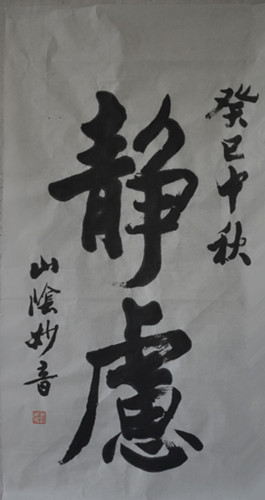 癸巳中秋
静慮
山陰妙音